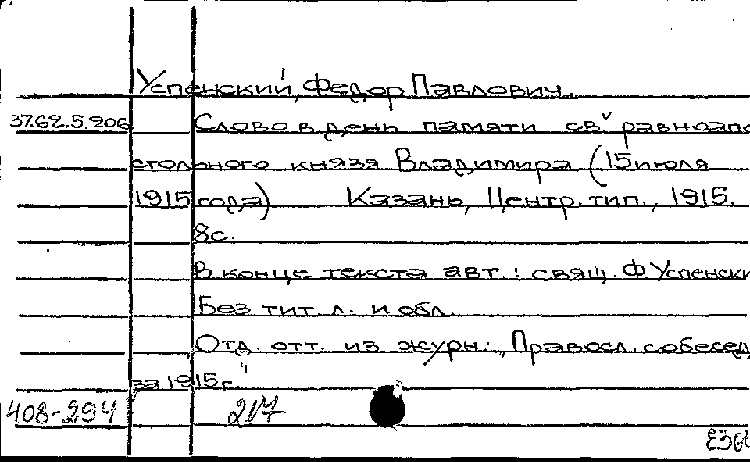 Успенский, Федор Павлович.
37.62.5.906 Слово в день памяти св. равноапо
стольного князя Владимира (15 июля
1915 года) Казань, Центр. тип., 1915.
8 с.
В конце текста авт.: свящ. Ф Успенски
Без тит. л. и обл.
Отд. отт. из журн.: „Правосл. собесед
за 1915 г."
408-294 217